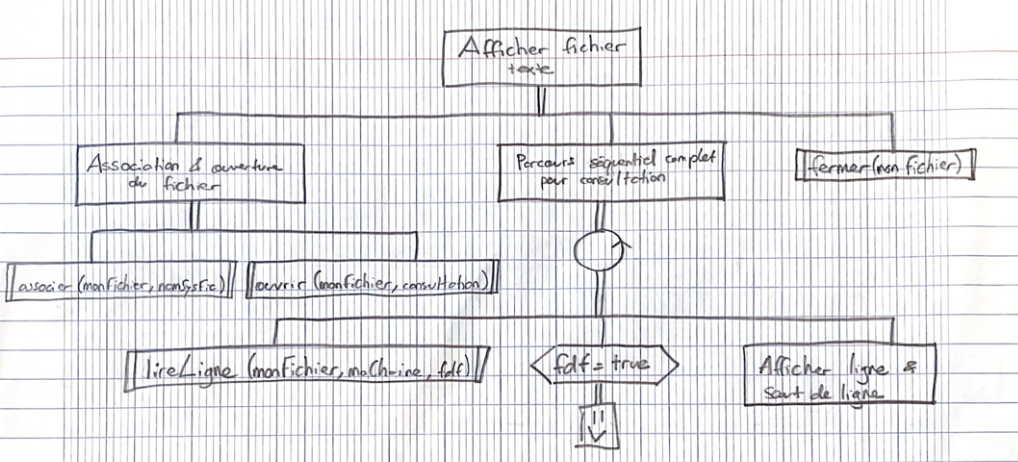 Afficher fichier
texte
Association & ouverture
du fichier
Parcours séquentiel complet
pour consultation
fermer(monfichier)
associer(monFichier, nomSysFic)
ouvrir (monfichier, consultation)
lireLigne (monFichier, maChaine, fdf)
fdf = true
Afficher ligne &
saut de ligne